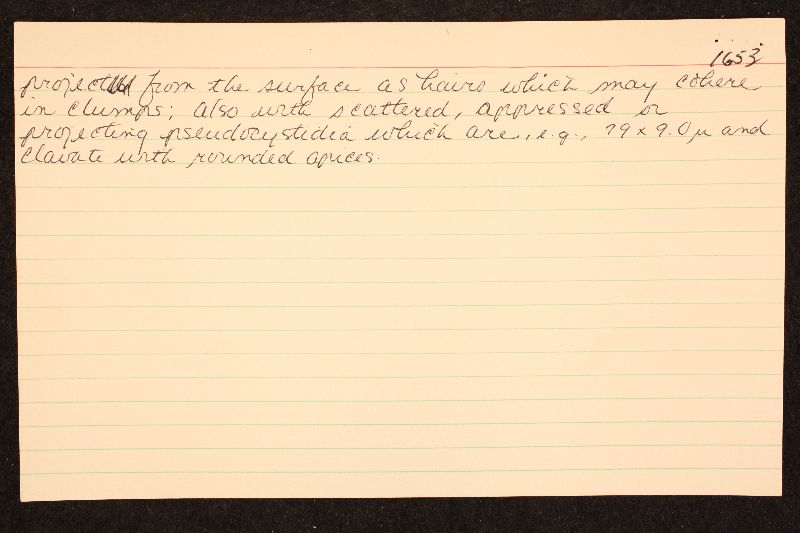 1653
project from the surface as hairs which may cohere
in clumps; also with scattered, appressed or
projecting pseudocystidia which are, e.g., 79 x 9.0 µ and
clavate with rounded apices.